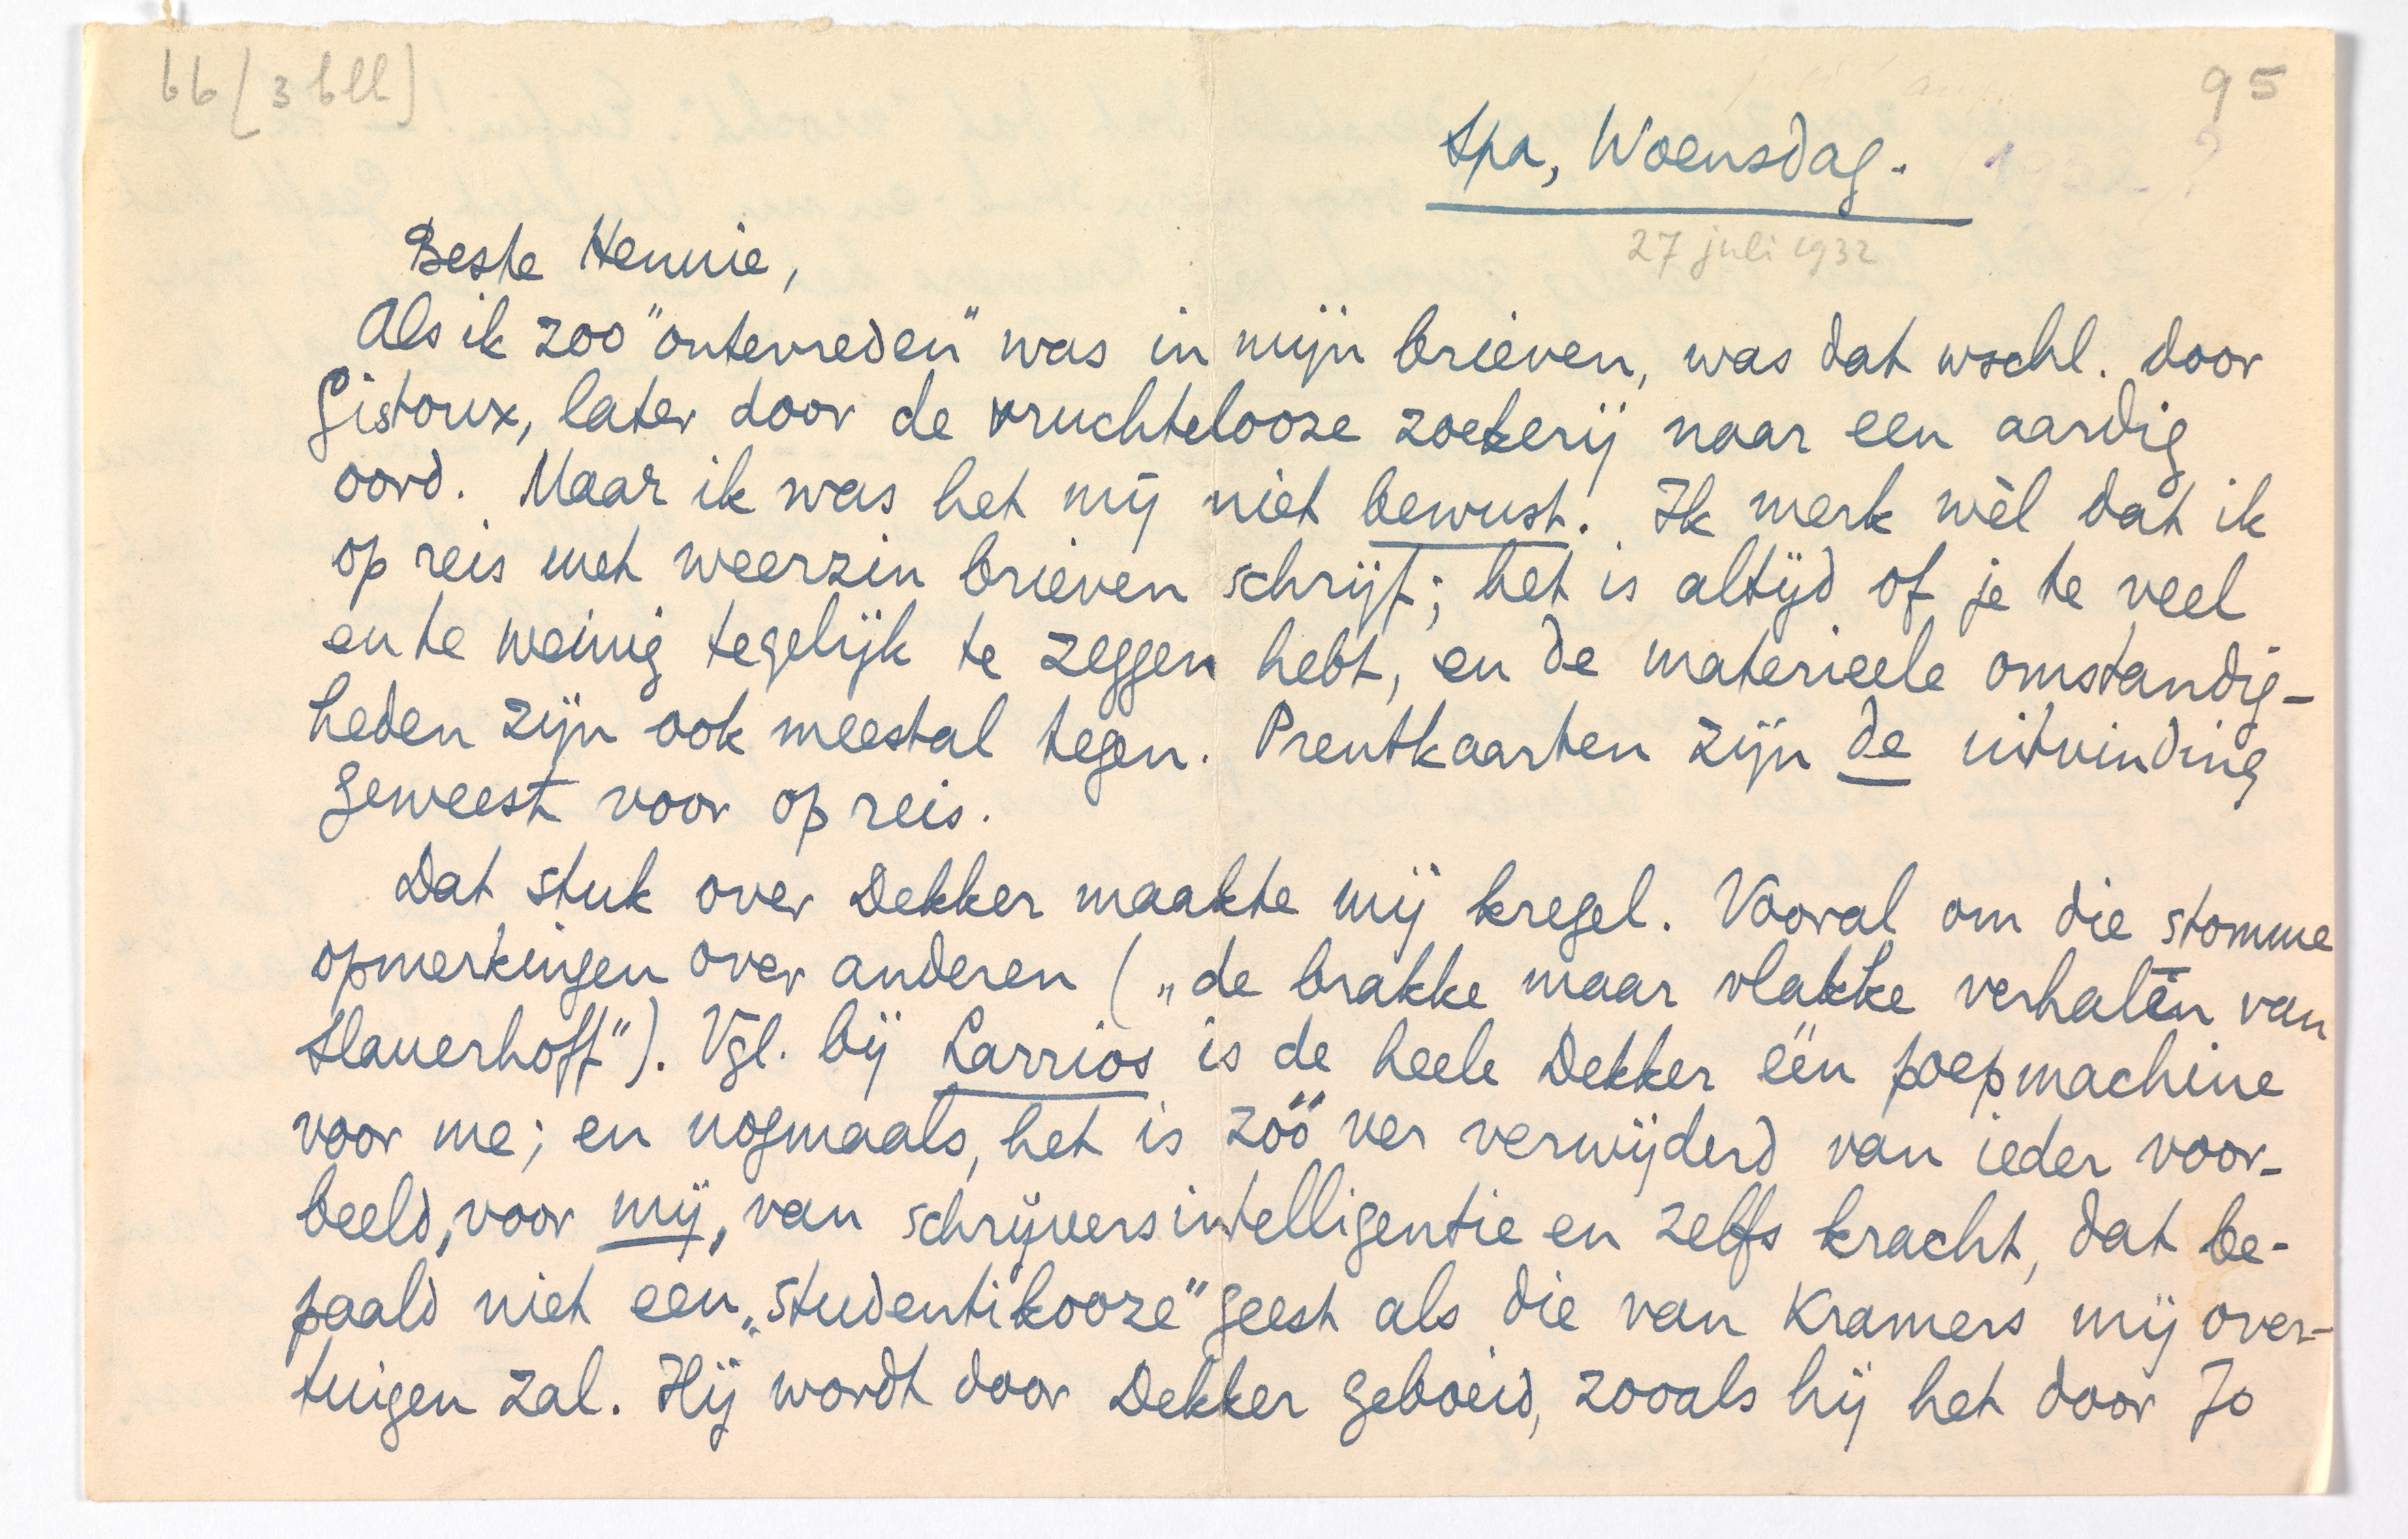 66 [3 bll]
95
Spa, Woensdag.
27 juli 1932
Beste Hennie,
Als ik zoo "ontevreden" was in mijn brieven, was dat wschl. door
Gistoux, later door de vruchtelooze zoekerij naar een aardig
oord. Maar ik was het mij niet bewust. Ik merk wèl dat ik
op reis met weerzin brieven schrijf; het is altijd of je te veel
en te weinig tegelijk te zeggen hebt, en de materieele omstandig-
heden zijn ook meestal tegen. Prentkaarten zijn de uitvinding
geweest voor op reis.
Dat stuk over Dekker maakte mij kregel. Vooral om die stomme
opmerkingen over anderen („de brakke maar vlakke verhalen van
Slauerhoff"). Vgl. bij Larrios is de heele Dekker één poepmachine
voor me; en nogmaals, het is zóó ver verwijderd van ieder voor-
beeld, voor mij, van schrijversintelligentie en zelfs kracht, dat be-
paald niet een „studentikooze" geest als die van Kramers mij over-
tuigen zal. Hij wordt door Dekker geboeid, zooals hij het door Jo